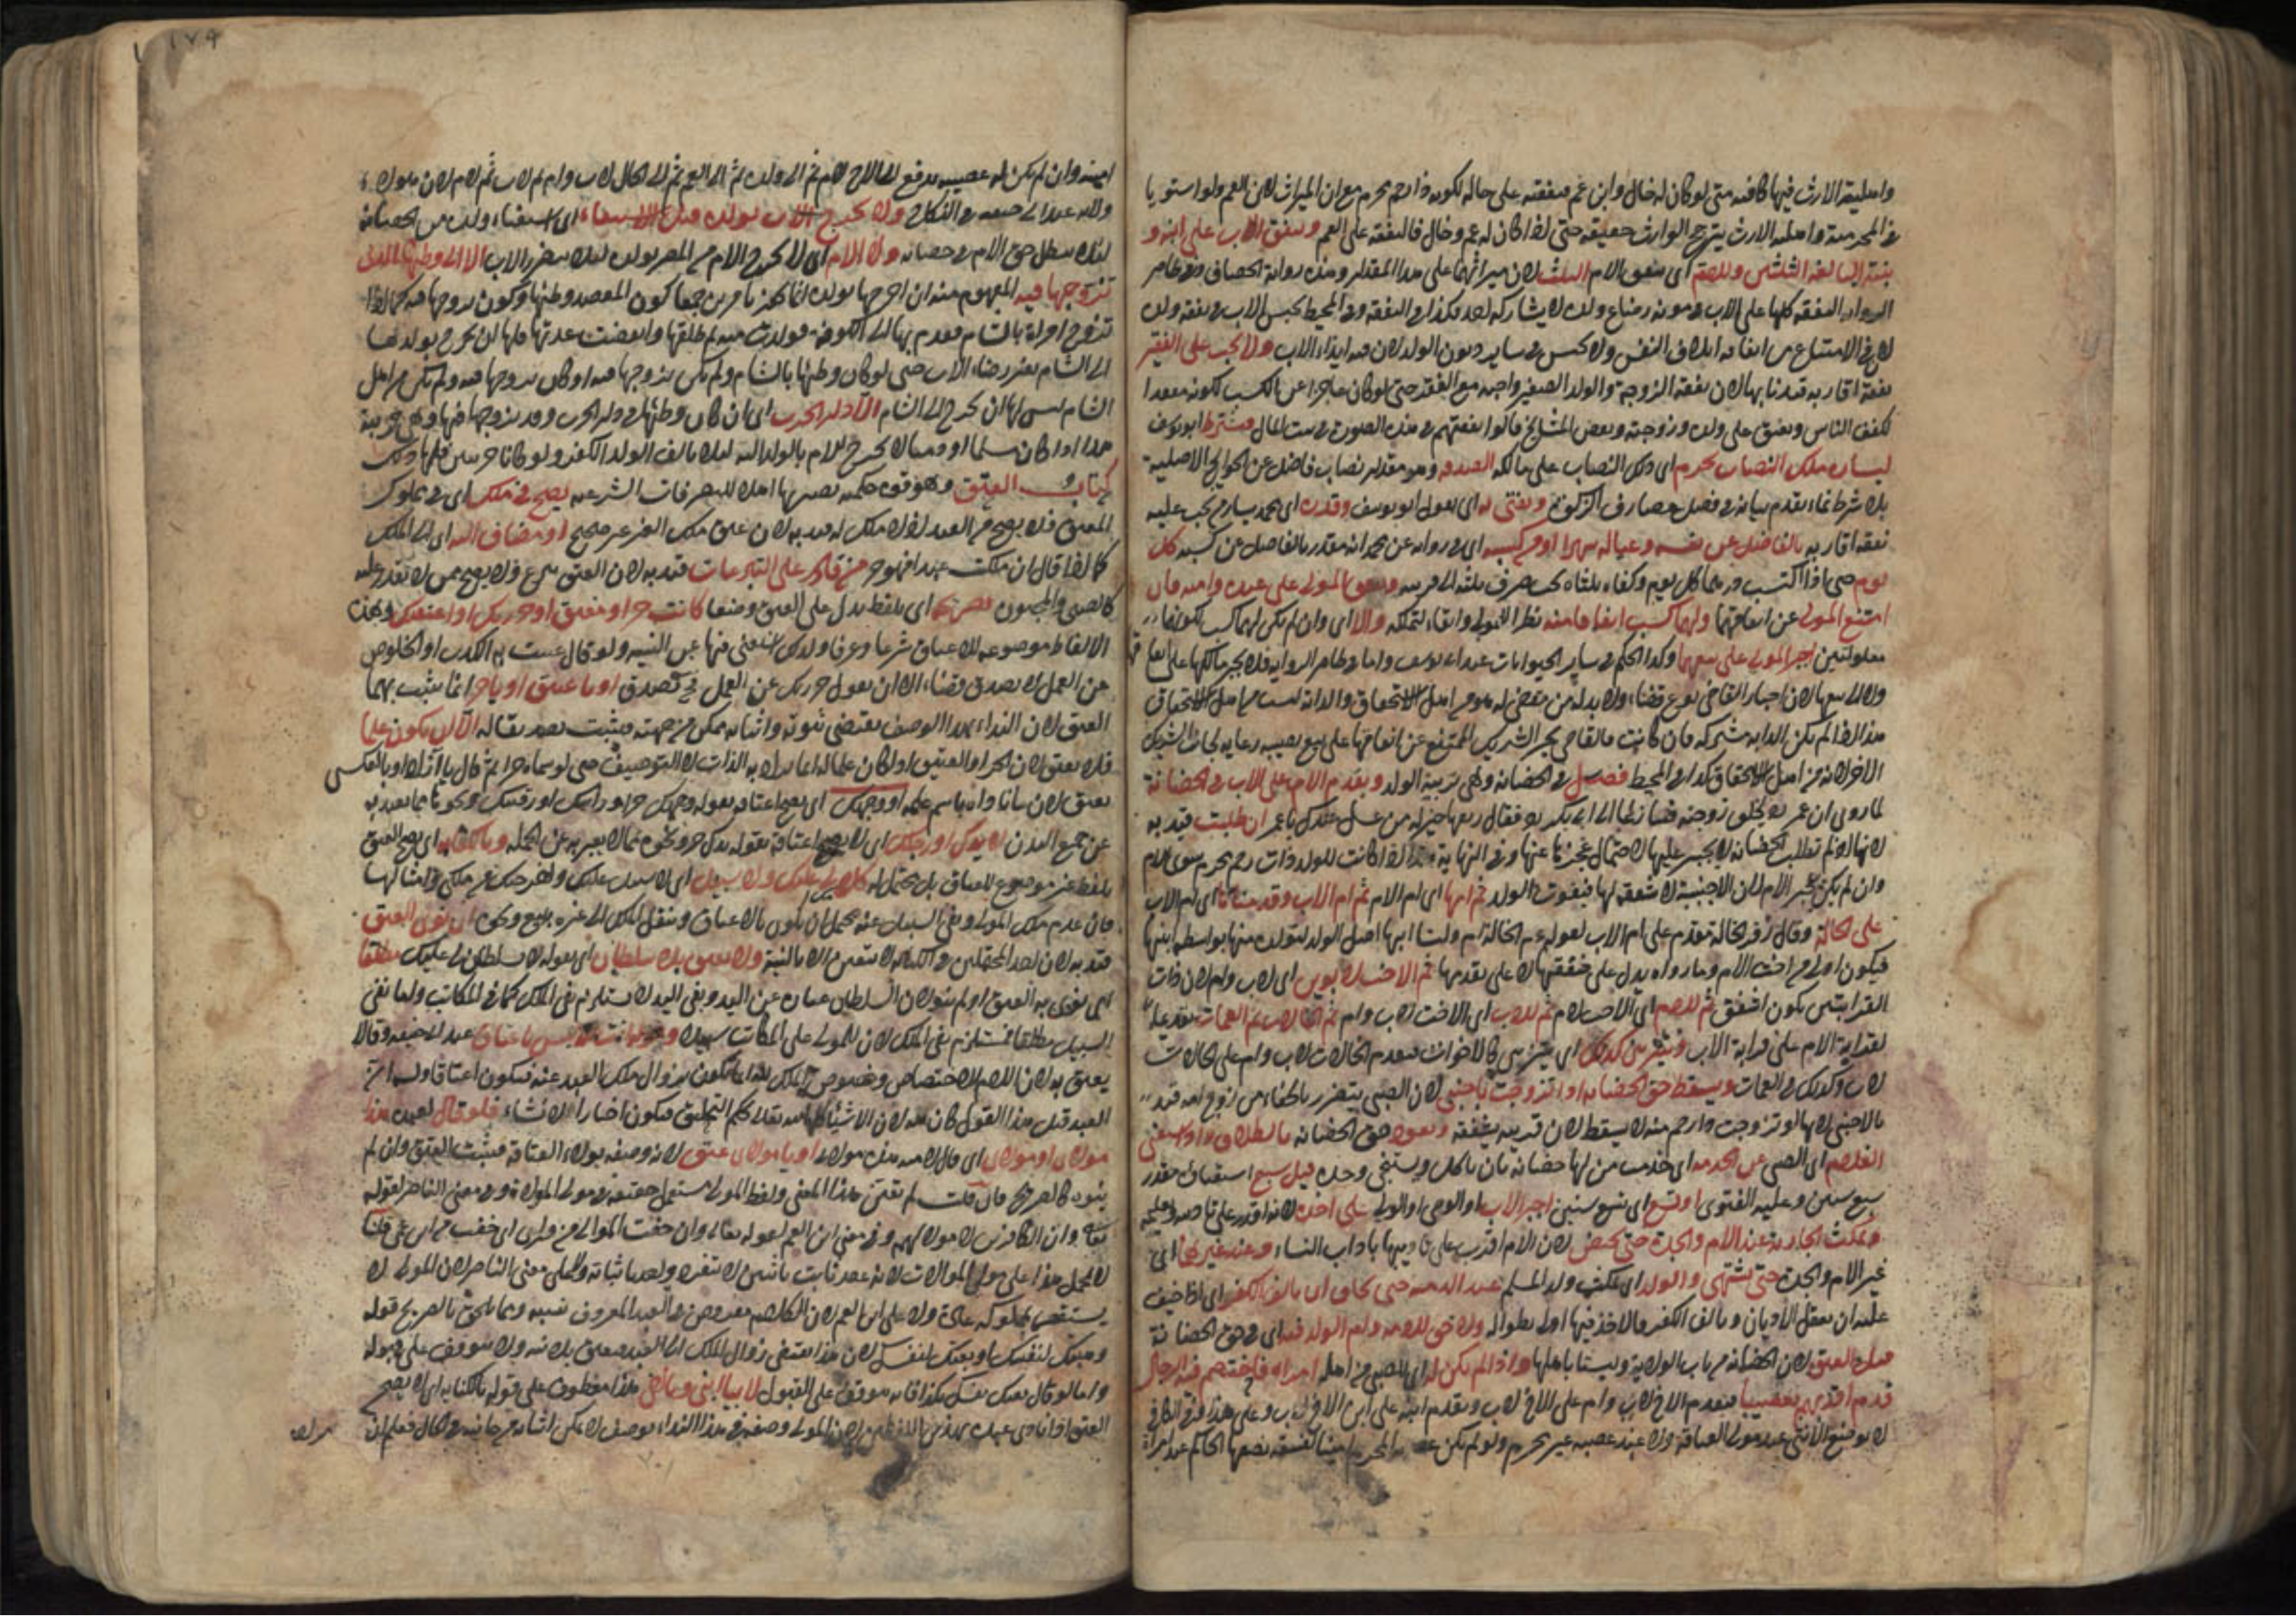 واهلية الارث فيها كافية حتى لو كان له خال وابن عم فنفقته على خاله لكونه ذا رحم محرم مع ان الميراث لابن العم ولو استويا
في المحرمية واهلية الارث يترجح الوارث حقيقة حتى اذا كان له عم وخال فالنفقة على العم وينفق الاب على ابنه و
بنته البالغة الثلثين وللام اي ينفق الام الثلث لان ميراثهما على هذا المقدار وهذه رواية الخصاف وفي ظاهر
الرواية النفقة كلها على الاب ومؤنة رضاع ولده لا يشاركه احد فكذا في النفقة وفي المحيط يحبس الاب في نفقة ولده
لان في الامتناع من انفاقه اتلاف النفس ولا يحبس في سائر ديون الولد لان فيه ايذاء الاب ولا تجب على الفقير
نفقة اقاربه قيدنا بها لان نفقة الزوجة والولد الصغير واجبة مع الفقر حتى لو كان عاجزا عن الكسب لكونه مقعدا
تكفف الناس وينفق على ولده وزوجته وبعض المشايخ قالوا نفقتهم في هذه الصورة في بيت المال ويشترط ابو يوسف
ليساره ملك النصاب محرم اي ذلك النصاب على مالكه الصدقة وهو مقدار نصاب فاضل عن الحوائج الاصلية
بلا شرط نماء تقدم بيانه في فصل مصارف الزكوة ويفتى به اي بقول ابو يوسف وقدره اي محمد يسار من يجب عليه
نفقة اقاربه بالفاضل عن نفسه وعياله شهرا او من كسبه اي في رواية عن محمد انه مقدر بالفاضل من كسبه كل
يوم حتى اذا اكتسب درهما كل يوم وكفاه ثلثاه يجب صرف ثلثه الى قريبه وينفق المولى على عبده وامته فان
امتنع المولى عن انفاقهما ولهما كسب انفقا منه نظرا للمولى وابقاء لملكه والا اي وان لم يكن لهما كسب لكونهما
معلولتين اجبر المولى على بيعهما وكذا الحكم في سائر الحيوانات عند ابي يوسف واما في ظاهر الرواية فلا يجبر مالكها على انفاقها
ولا الى بيعها لان اجبار القاضي نوع قضاء ولا بد له من مقضي له هو من اهل الاستحقاق والدابة ليست من اهل الاستحقاق
هذا اذا لم يكن الدابة مشتركة فان كانت فالقاضي يجبر الشريك الممتنع عن انفاقها على بيع نصيبه رعاية لجانب الشريك
الاخر لانه من اهل الاستحقاق كذا في المحيط فصل في الحضانة وهي تربية الولد ويقدم الام على الاب في الحضانة
لما روى ان عمر طلق زوجته فتنازعا الى ابي بكر فقال ريحها خير له من عسل عندك يا عمر ان طلبت قيد به
لانها لو لم تطلب الحضانة لا يجبر عليها لاحتمال عجزها عنها وفي النهاية هذا اذا كانت للولد ذات رحم محرم سوى الام
وان لم يكن تجبر الام لان الاجنبية لا شفقة لها فيفوت الولد ثم امها اي ام الام ثم ام الاب وقدمناها اي ام الاب
على الخالة وقال زفر الخالة مقدم على ام الاب لقوله الخالة ام ولنا انها اصل الولد لتولده منها بواسطة ابنها
فيكون اولى من اخت الام وما رواه يدل على شفقتها لا على تقدمها ثم الاخت لابوين اي لاب وام لان ذات
القرابتين يكون اشفق ثم للام اي الاخت لام ثم للاب اي الاخت لاب وام ثم الخالات ثم العمات
لقرابة الام على قرابة الاب وينزلن كذلك اي ينزلن كالاخوات فيقدم الخالات لاب وام على خالات
لاب وكذلك في العمات ويسقط حق الحضانة اذا تزوجت باجنبي لان الصبي يتضرر بالجفاء من زوج امه قيد
بالاجنبي لانها لو تزوجت ذا رحم منه لا يسقط لان قريبه يشفقه ويعود حق الحضانة بالطلاق واذا استغنى
الغلام اي الصبي عن الخدمة اي خدمة من لها حضانة بان ياكل ويستنجي وحده قيل سبع استغناؤه مقدر
سبع سنين وعليه الفتوى او تسع اي تسع سنين اجبر الاب او الوصي او الولي على اخذه لانه اقدر على تاديبه وتعليمه
وتمكث الجارية عند الام والجدة حتى تحيض لان الام اقدر على تاديبها باداب النساء وعند غيرهما اي
غير الام والجدة حتى تشتهى والولد اي يمكث ولد المسلم عند الذمية حتى يخاف ان يالف الكفر اي اذا خيف
عليه ان يعقل الاديان ويالف الكفر فالاخذ فيها اولى نظرا له ولا حق للامة وام الولد فيه اي في حق الحضانة
قبل العتق لان الحضانة من باب الولاية وليستا باهلها واذا لم يكن له اي للصبي من اهله امراة فاختصم فيه الرجال
قدم اقربهم تعصيبا فيقدم الاخ لاب وام على الاخ لاب ويقدم ابنه على ابن الاخ لاب وعلى هذا في الكافي
لا يوضع الانثى عند مولى العتاقة ولا عند عصبة غير محرم ولو لم يكن المحرم امينا لفسقه يضعها الحاكم عند امراة
امينة وان لم يكن له عصبة يدفع الى الاخ لام ثم الى ولده ثم الى العم ثم الى الخال لاب وام ثم لاب ثم لام لان لهؤلاء
ولاية عند ابي حنيفة في النكاح ولا يخرج الاب بولده قبل الاستغناء اي استغناء ولده من الحضانة
لئلا يبطل حق الام في حضانته ولا الام اي لا تخرج الام من المصر بولده لئلا يتضرر الاب الا الى وطنها الذي
تزوجها فيه المفهوم منه ان اخراجها بولده انما يجوز بامرين جميعا كون المقصد وطنها وكون تزوجها فيه كما اذا
تزوج امراة بالشام فقدم بها الى الكوفة فولدت منه ثم طلقها وانقضت عدتها فلها ان تخرج بولدها
الى الشام بغير رضاء الاب حتى لو كان وطنها بالشام ولم يكن تزوجها فيه او كان تزوجها فيه ولم يكن من اهل
الشام ليس لها ان تخرج الى الشام الا دار الحرب اي ان كان وطنها في دار الحرب وقد تزوجها فيها وهي حربية
هذا اذا كان مسلما او ذميا لا يخرج الام بالولد اليه لئلا يالف الولد الكفر ولو كانا حربيين فلها ذلك
كتاب العتق وهو قوة حكمية يصير بها اهلا للتصرفات الشرعية يصح في ملك اي في مملوك
المعتق فلا يصح من العبد اذ لا ملك له قيد به لان عتق ملك الغير غير صحيح او مضاف اليه اي الى الملك
كما اذا قال ان ملكت عبدا فهو حر من قادر على التبرعات قيد به لان العتق تبرع فلا يصح ممن لا يقدر عليه
كالصبي والمجنون بصريحه اي بلفظ يدل على العتق وضعا كانت حر او معتق او حررتك او اعتقتك وهذه
الالفاظ موضوعة للاعتاق شرعا وعرفا ولذلك استغنى فيها عن النية ولو قال عنيت به الكذب او الخلوص
من العمل لا يصدق قضاء الا ان يقول حررتك عن العمل فيصدق او يا عتيق او يا حر انما يثبت بهما
العتق لان النداء بهذا الوصف يقتضي ثبوته واثباته ممكن من جهته فيثبت تصديقا له الا ان يكون علما
فلا يعتق لان الحر او العتيق اذا كان علما له انما يراد به الذات لا التوصيف حتى لو سماه حرا ثم قال يا ازاد او بالعكس
يعتق لانه ناداه باسم علمه او وجهك اي يصح اعتاقه بقوله وجهك حر او راسك او رقبتك ونحوها مما يعبر به
عن جميع البدن لا يدك او رجلك اي لا يصح اعتاقه بقوله يدك حر ونحوه مما لا يعبر به عن الجملة وبالكناية اي يصح العتق
بلفظ غير موضوع للعتاق بل يحتمله كلا ملك لي عليك ولا سبيل اي لا سبيل عليك وخرجت من ملكي وامثالها
فان عدم ملك المولى ونفي السبيل عنه يحتمل ان يكون بالاعتاق وبنقل الملك الى غيره ببيع ونحوه ان نوى العتق
قيد به لان احد المحتملين في الكناية لا يتعين الا بالنية ولا يعتق بلا سلطان اي بقوله لا سلطان لي عليك مطلقا
اي نوى به العتق او لم ينو لان السلطان عبارة عن اليد ونفي اليد لا يستلزم نفي الملك كما في المكاتب واما نفي
السبيل مطلقا فمستلزم نفي الملك لان للمولى على المكاتب سبيلا وهو انت لله ليس باعتاق عند ابي حنيفة وقالا
يعتق به لان اللام للاختصاص وخصوص الملك لله انما يكون بزوال ملك العبد عنه فيكون اعتاقا وله ان
العبد قبل هذا القول كان لله لان الاشياء كلها لله تعالى بحكم التخليق فيكون اخبارا لا انشاء فلو قال لعبده هذا
مولاي او مولاي اي قال لامته هذه مولاتي او يا مولاي عتق لانه وصفه بولاء العتاقة فيثبت العتق وان لم
ينو كالصريح فان قلت لم تعين هذا المعنى ولفظ المولى مستعمل حقيقة في مولى الموالاة وفي معنى الناصر لقوله
تعالى وان الكافرين لا مولى لهم وفي معنى ابن العم لقوله تعالى وان خفت الموالي من ورائي اي خفت من ابن عمي قلنا
لا يحمل هذا على مولى الموالات لانه عقد ثابت باثنين لا ينفرد واحد باثباته ولا على معنى الناصر لان المولى لا
يستنصر بمملوكه عادة ولا على ابن العم لان الكلام مفروض في العبد المعروف نسبه ومما يلحق بالصريح قوله
وهبتك لنفسك او بعتك لنفسك لان هذا يقتضي زوال الملك الى العبد فيعتق بلا نية ولا يتوقف على قبوله
واما لو قال بعتك نفسك بكذا فانه موقوف على القبول لا بيا ابني ويا اخي هذا معطوف على قوله بالكناية اي لا يصح
العتق اذا نادى عبده بهذين اللفظين لان المولى وصفه في هذا النداء بوصف لا يمكن اثباته من جانبه في الحال فعلم ان